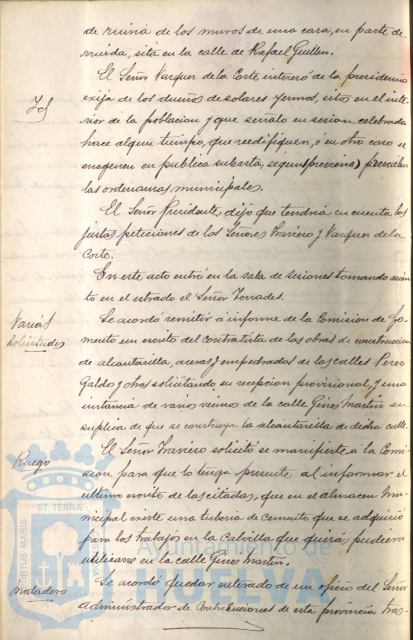 de ruina de los muros de una casa, en parte de-
rruida, sita en la calle de Rafael Guillen.
El Señor Vazquez de la Corte interesó de la presidencia
Id
exija de los dueños de solares yermos, sitos en el inte-
rior de la poblacion y que señaló en sesion celebrada
hace algun tiempo, que reedifiquen, ó en otro caso se
enagenen en publica subasta, segun previenen
las ordenanzas municipales.
El Señor Presidente, dijo que tendria en cuenta las
justas peticiones de los Señores Traviero y Vazquez de la
Corte.
En este acto entró en la sala de sesiones tomando asien-
to en el estrado el Señor Terrades.
Varias
solicitudes
Se acordó remitir á informe de la Comision de Fo-
mento un escrito del contratista de las obras de construccion
de alcantarilla, aceras y empedrados de las calles Perez
Galdos y otras solicitando su recepcion provisional, y una
instancia de varios vecinos de la calle Gines Martin en
suplica de que se construya la alcantarilla de dicha calle.
Ruego
El Señor Traviero solicitó se manifieste á la Comi-
sion para que lo tenga presente al informar el
ultimo escrito de las citadas, que en el almacen mu-
nicipal existe una tuberia de cemento que se adquirió
para los trabajos en la Calvilla que quizá pudiera
utilizarse en la calle Gines Martin.
Matadero
Se acordó quedar enterado de un oficio del Señor
administrador de Contribuciones de esta provincia tras-
PORTUS MARIS ET TERRAE
Ayuntamiento de
HUELVA